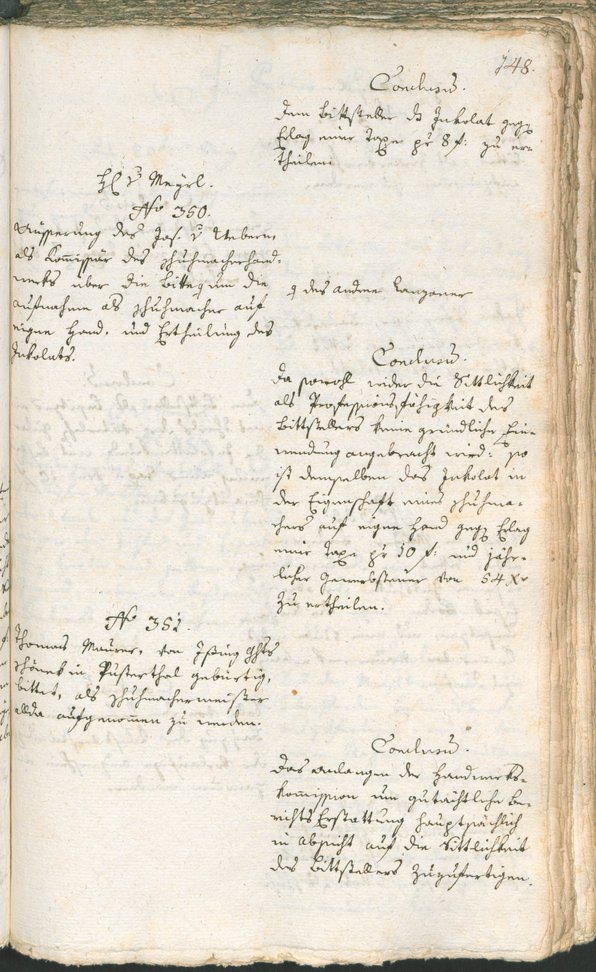 148.
Conclusum.
Dem Bittsteller ds Inkolat gegen
Erlag einer Taxe pr 8 f: zu er-
theilen.
H: v Meyrl.
No 350.
Äusserung des Jos. v Webern,
als Kommissär des Schuhmacherhand-
werks über die Bitte um die
aufnahme als Schuhmacher auf
eigne Hand, und Ertheilung des
Inkolats.
des Andree
Conclusum.
Da sowohl wider die Sittlichkeit
als Professions Fähigkeit des
Bittstellers keine gründliche Ein-
wendung angebracht wird: so
ist demselben das Inkolat in
der Eigenschaft eines Schuhma-
chers auf eigne Hand gegen Erlag
einer Taxe pr 10 f: und jähr-
licher Gewerbsteuer von 54 xr
zu ertheilen.
No 351.
Thomas Maurer, von Issing Ghts
Schöneck im Pusterthal gebürtig,
bittet, als Schuhmachermeister
allda aufgenommen zu werden.
Conclusum.
Das Anlangen der Handwerks-
kommission um gutächtliche Be-
richts Erstattung hauptsächlich
in Absicht auf die Sittlichkeit
des Bittstellers zuzufertigen.